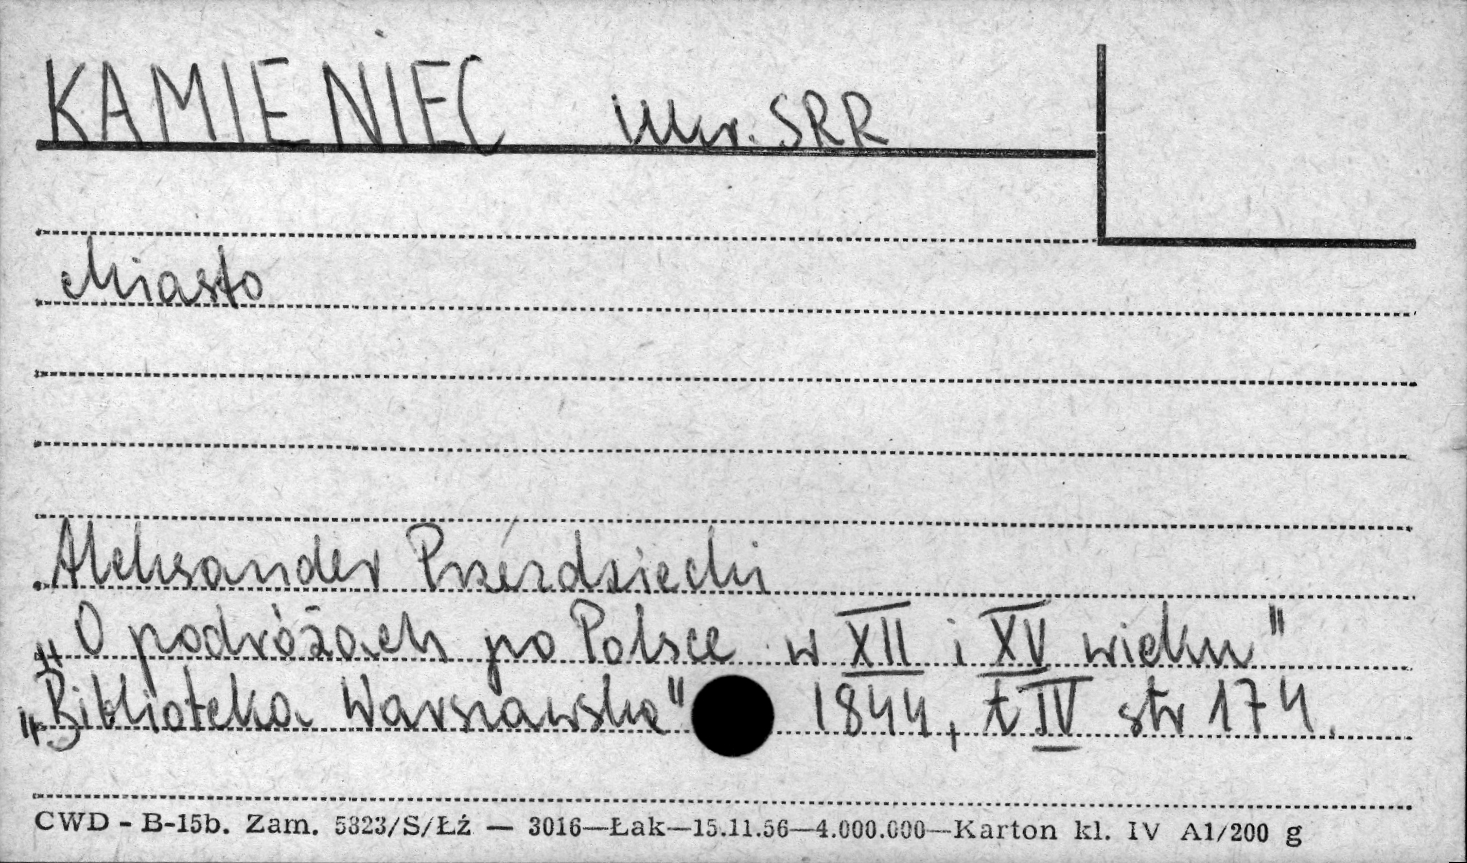 KAMIENIEC Ukr. SRR
Miasto
Aleksander Przeździecki
„O podróżach po Polsce w XII i XV wieku"
„Biblioteka Warszawska" 1844, t IV str 174.
CWD - B-15b. Zam. 5323/S/Łż — 3016—Łak—15.11.56—4.000.000—Karton kl. IV A1/200 g